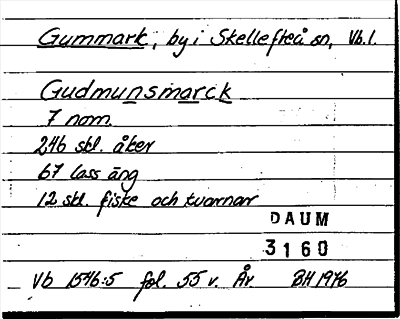 Gummark, by i Skellefteå sn, Vb.l.
Gudmunsmarck
7 nom.
246 skl. åker
67 lass äng
12 skl. fiske och kvarnar
DAUM
3160
Vb 1546:5 fol. 55 v. År BH 1976